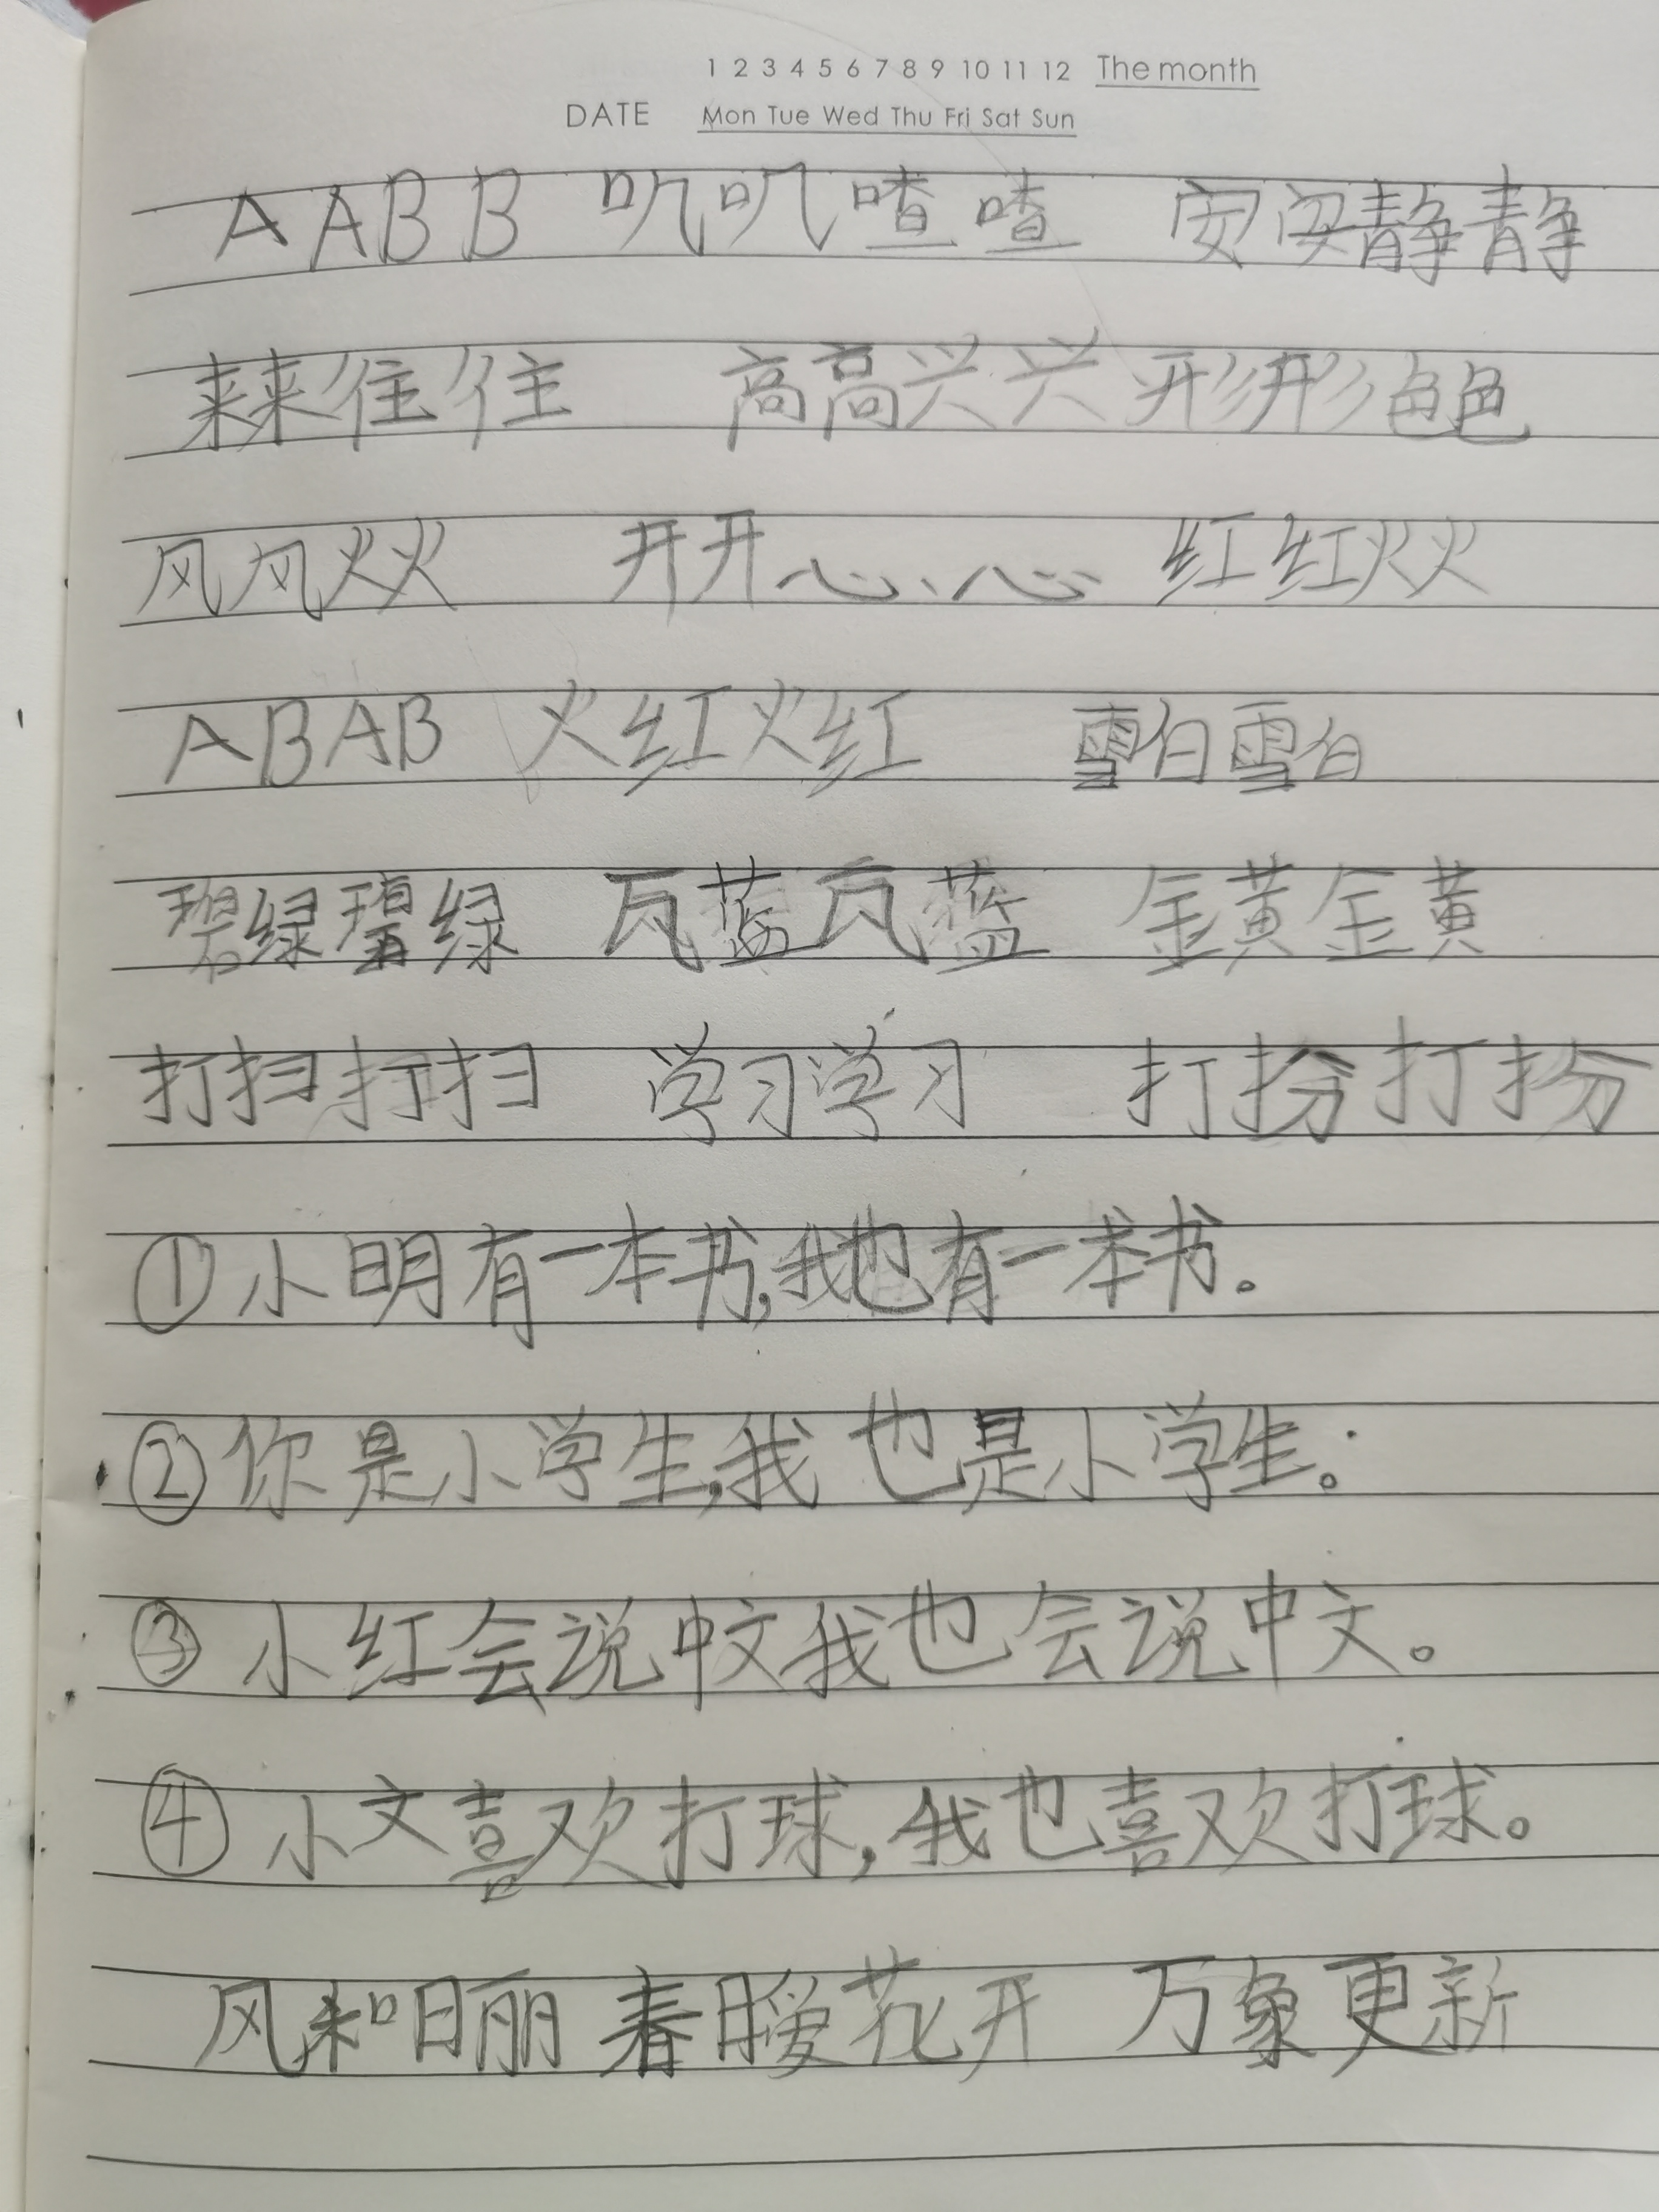 1 2 3 4 5 6 7 8 9 10 11 12 The month
DATE Mon Tue Wed Thu Fri Sat Sun
AABB 叽叽喳喳 安安静静
来来往往 高高兴兴 形形色色
风风火火 开开心心 红红火火
ABAB 火红火红 雪白雪白
碧绿碧绿 瓦蓝瓦蓝 金黄金黄
打扫打扫 学习学习 打扮打扮
①小明有一本书,我也有一本书。
②你是小学生,我也是小学生。
③小红会说中文我也会说中文。
④小文喜欢打球,我也喜欢打球。
风和日丽 春暖花开 万象更新